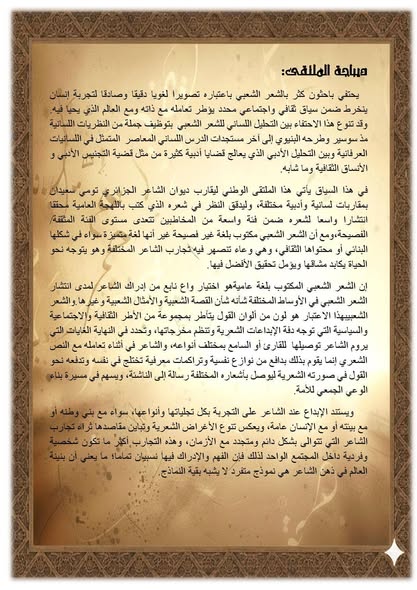 ديباجة الملتقى:
يحتفي باحثون كثر بالشعر الشعبي باعتباره تصويرا لغويا دقيقا وصادقا لتجربة إنسان
ينخرط ضمن سياق ثقافي واجتماعي محدد يؤطر تعامله مع ذاته ومع العالم الذي يحيا فيه.
وقد تنوع هذا الاحتفاء بين التحليل اللساني للشعر الشعبي بتوظيف جملة من النظريات اللسانية
مذ سوسير وطرحه البنيوي إلى آخر مستجدات الدرس اللساني المعاصر المتمثل في اللسانيات
العرفانية وبين التحليل الأدبي الذي يعالج قضايا أدبية كثيرة من مثل قضية التجنيس الأدبي و
الأنساق الثقافية وما شابه.
في هذا السياق يأتي هذا الملتقى الوطني ليقارب ديوان الشاعر الجزائري تومي سعيدان
بمقاربات لسانية وأدبية مختلفة، وليدقق النظر في شعره الذي كتب باللهجة العامية محققا
انتشارا واسعا لشعره ضمن فئة واسعة من المخاطبين تتعدى مستوى الفئة المثقفة/
الفصيحة،ومع أن الشعر الشعبي مكتوب بلغة غير فصيحة غير أنها لغة متميزة سواء في شكلها
البنائي أو محتواها الثقافي، وهي وعاء تنصهر فيه تجارب الشاعر المختلفة وهو يتوجه نحو
الحياة يكابد مشاقها ويؤمل تحقيق الأفضل فيها.
إن الشعر الشعبي المكتوب بلغة عاميةهو اختيار واع نابع من إدراك الشاعر لمدى انتشار
الشعر الشعبي في الأوساط المختلفة شأنه شأن القصة الشعبية والأمثال الشعبية وغيرها.والشعر
الشعبيبهذا الاعتبار هو لون من ألوان القول يتأطر بمجموعة من الأطر الثقافية والاجتماعية
والسياسية التي توجه دفة الإبداعات الشعرية وتنظم مخرجاتها، وتحدد في النهاية الغايات التي
يروم الشاعر توصيلها للقارئ أو السامع بمختلف أنواعه، والشاعر في أثناء تعامله مع النص
الشعري إنما يقوم بذلك بدافع من نوازع نفسية وتراكمات معرفية تختلج في نفسه وتدفعه نحو
القول في صورته الشعرية ليوصل بأشعاره المختلفة رسالة إلى الناشئة، ويسهم في مسيرة بناء
الوعي الجمعي للأمة.
ويستند الإبداع عند الشاعر على التجربة بكل تجلياتها وأنواعها، سواء مع بني وطنه أو
مع بيئته أو مع الإنسان عامة، ويعكس تنوع الأغراض الشعرية وتباين مقاصدها ثراء تجارب
الشاعر التي تتوالى بشكل دائم ومتجدد مع الأزمان، وهذه التجارب أكثر ما تكون شخصية
وفردية داخل المجتمع الواحد لذلك فإن الفهم والإدراك فيها نسبيان تماما؛ ما يعني أن بنينة
العالم في ذهن الشاعر هي نموذج متفرد لا يشبه بقية النماذج.